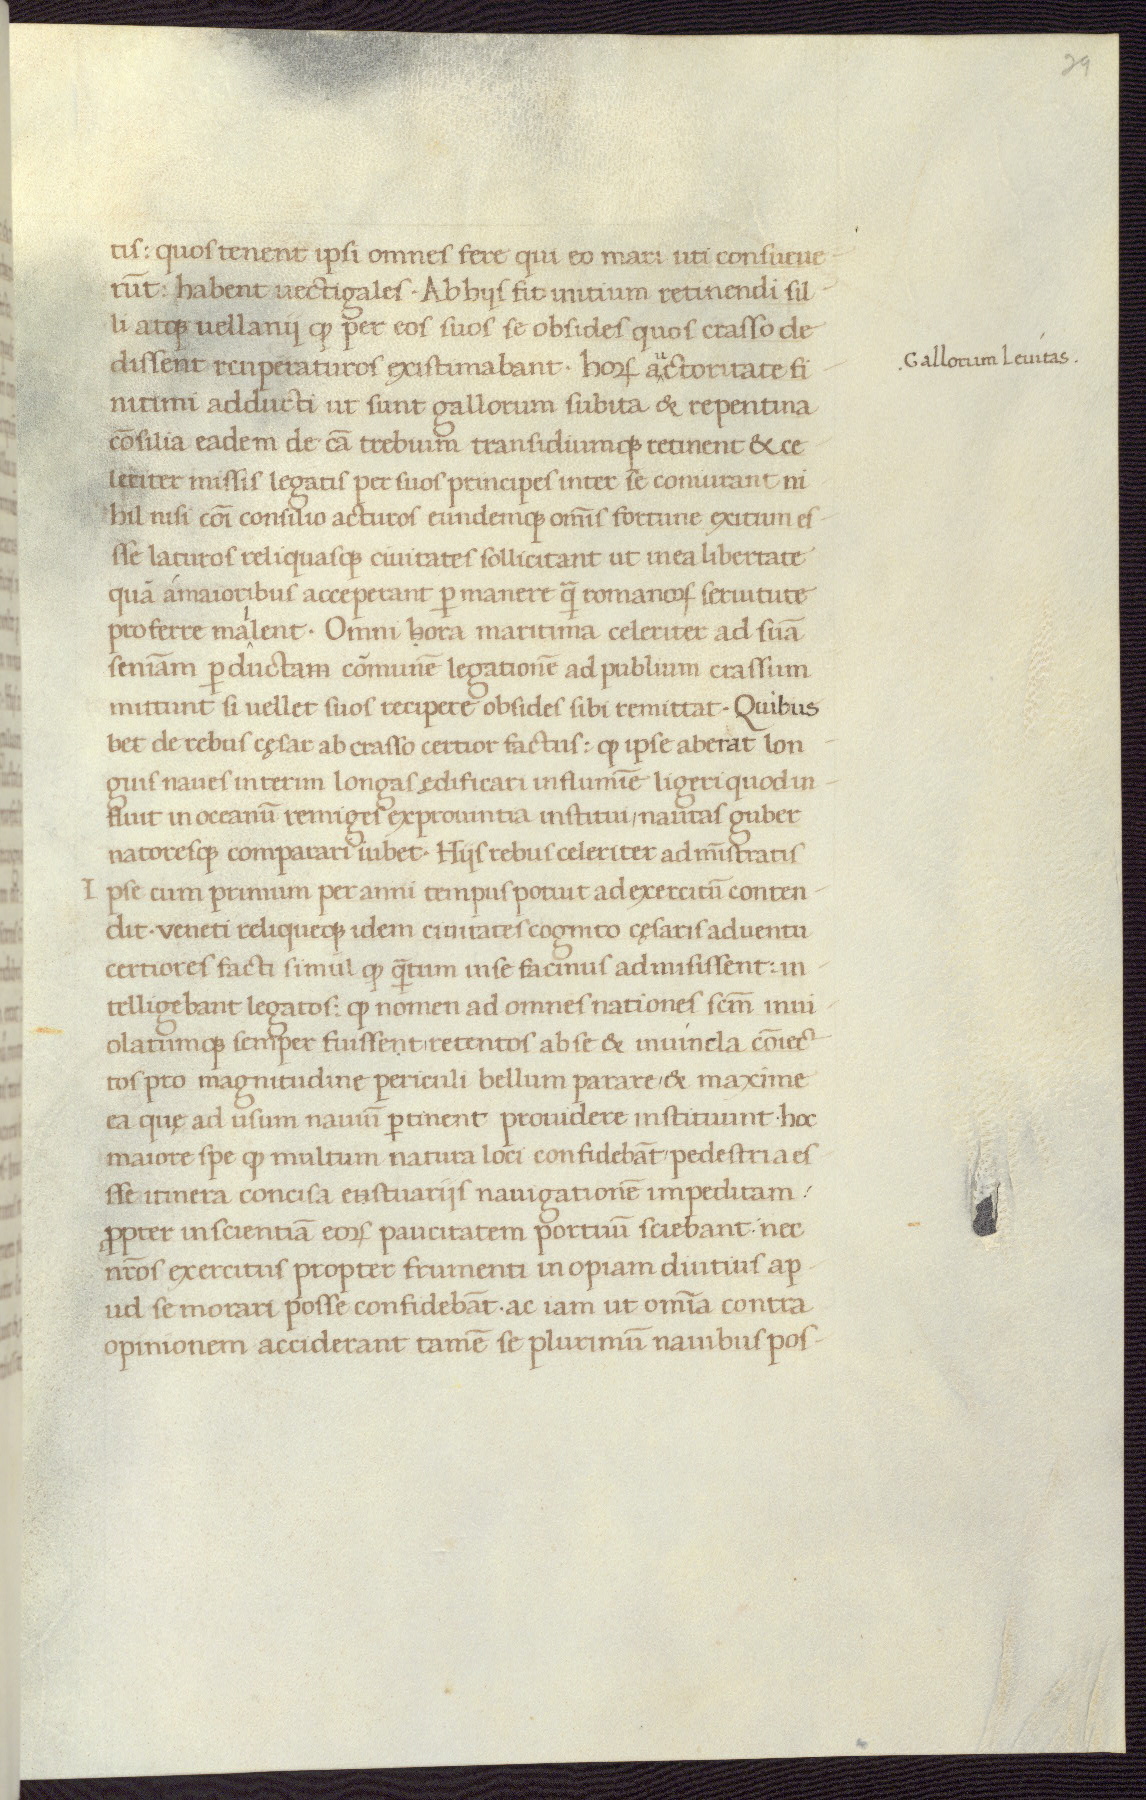 29
tis: quos tenent ipsi omnes fere qui eo mari uti consueue
rūt: habent uectigales · Ab hijs fit initium retinendi sil
li atqꝫ uellanij ꝙ per eos suos se obsides quos crasso de
dissent recuperaturos existimabant · hoꝝ auctoritate fi
nitimi adducti ut sunt gallorum subita & repentina
cōsilia eadem de cā trebium transidiumqꝫ retinent & ce
leriter missis legatis per suos principes inter se coniurant ni
hil nisi cōi consilio acturos eundemqꝫ om̄is fortune exitum es
sse laturos reliquasqꝫ ciuitates sollicitant ut in ea libertate
quā a maioribus acceperant ꝑmanere q̄ romanoꝝ seruitute
proferre malent · Omni hora maritima celeriter ad suā
seniām ꝑductam cōmunē legationē ad publium crassum
mittunt si uellet suos recipere obsides sibi remittat · Quibus
bet de rebus cęsar ab crasso certior factus: ꝙ ipse aberat lon
gius naues interim longas ędificari in flumīe ligeri quod in
fluit in oceanū remiges ex prouintia institui, nautas guber
natoresqꝫ comparari iubet · Hijs rebus celeriter adm̄istratis
Ipse cum primum per anni tempus potuit ad exercitū conten
dit · veneti reliqueqꝫ idem ciuitates cognito cęsaris aduentu
certiores facti simul ꝙ q̄tum in se facinus admisissent: in
telligebant legatos: ꝙ nomen ad omnes nationes scm̄ inui
olatumqꝫ semper fuissent, retentos ab se & in uincla cōiec
tos pro magnitudine periculi bellum parare, & maxime
ea quę ad usum nauiū ꝑtinent prouidere instituunt · hoc
maiore spe ꝙ multum natura loci confidebāt, pedestria es
sse itinera concisa estuarijs nauigationē impeditam:
ꝓpter inscientiā eoꝝ paucitatem portuū sciebant · nec
nr̄os exercitus propter frumenti inopiam diutius ap
ud se morari posse confidebāt · ac iam ut omīa contra
opinionem acciderant tamē se plurimū nauibus pos
.Gallorum Leuitas.